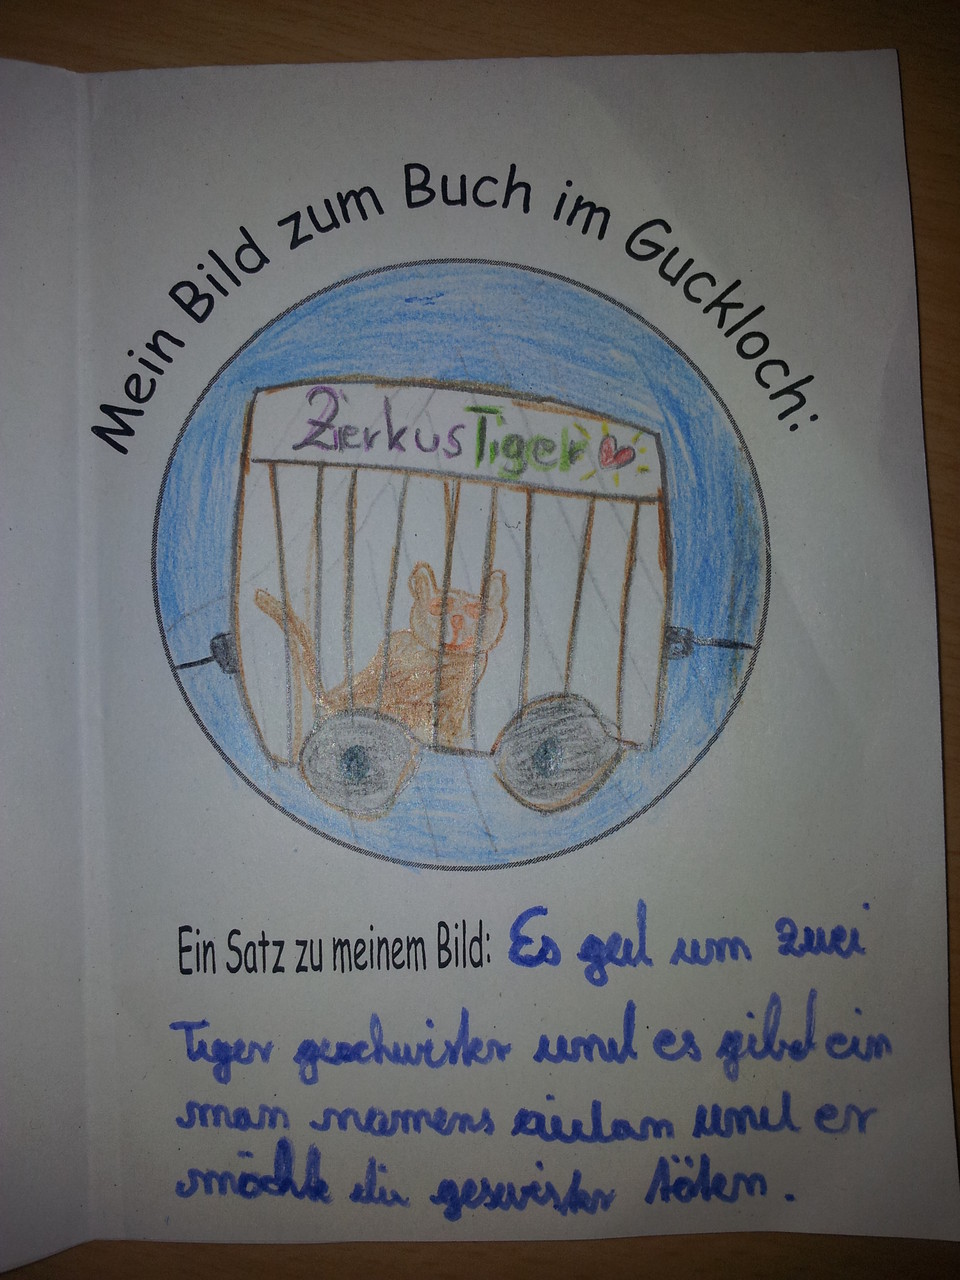 Mein Bild zum Buch im Guckloch:
Zierkus Tiger
Ein Satz zu meinem Bild: Es get um zwei
Tiger geschwister und es gibt ein
man namens und er
möchte die geswister töten.